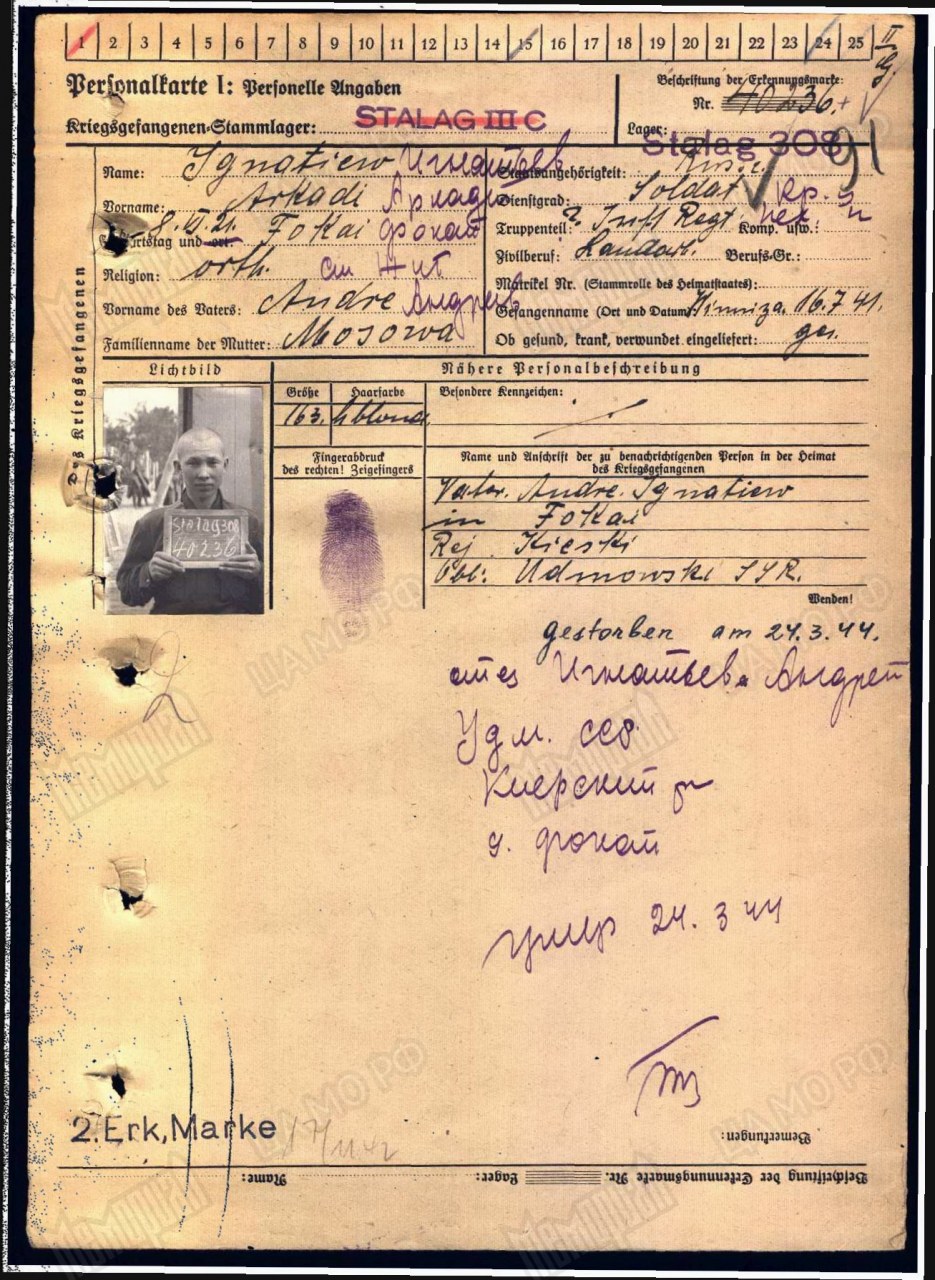 1 2 3 4 5 6 7 8 9 10 11 12 13 14 15 16 17 18 19 20 21 22 23 24 25
II
Personalkarte I: Personelle Angaben
Beschriftung der Erkennungsmarke:
Nr. 40236.
Kriegsgefangenen-Stammlager: STALAG III C
Lager: Stalag 308
91
Des Kriegsgefangenen
Name: Ignatiew Игнатьев
Staatsangehörigkeit: Russe
Vorname: Arkadi Аркадий
Dienstgrad: Soldat кр-ц
Geburtstag und -ort: 8. 21. Fokai Фокай
Truppenteil: ? Inft Regt. Komp. usw.:
Religion: orth.
Zivilberuf: Landarb. Berufs-Gr.:
Matrikel Nr. (Stammrolle des Heimatstaates):
Vorname des Vaters: Andre Андрей
Gefangenname (Ort und Datum): 16.7.41.
Familienname der Mutter: Mosowa
Ob gesund, krank, verwundet eingeliefert: ges.
Lichtbild
Nähere Personalbeschreibung
Größe Haarfarbe Besondere Kennzeichen:
163. blond
Stalag 308
40236
Fingerabdruck
des rechten! Zeigefingers
Name und Anschrift der zu benachrichtigenden Person in der Heimat
des Kriegsgefangenen
Vater. Andre. Ignatiew
in Fokai
Rej Kieski
Obl: Udmowski SSR.
Wenden!
gestorben am 24.3.44.
отец Игнатьев Андрей
Удм.
Киерский
д. Фокай
умер 24. 3 44
2. Erk, Marke
Bemerkungen:
Beschriftung der Erkennungsmarke Nr. Lager: Name:
ЦАМО РФ